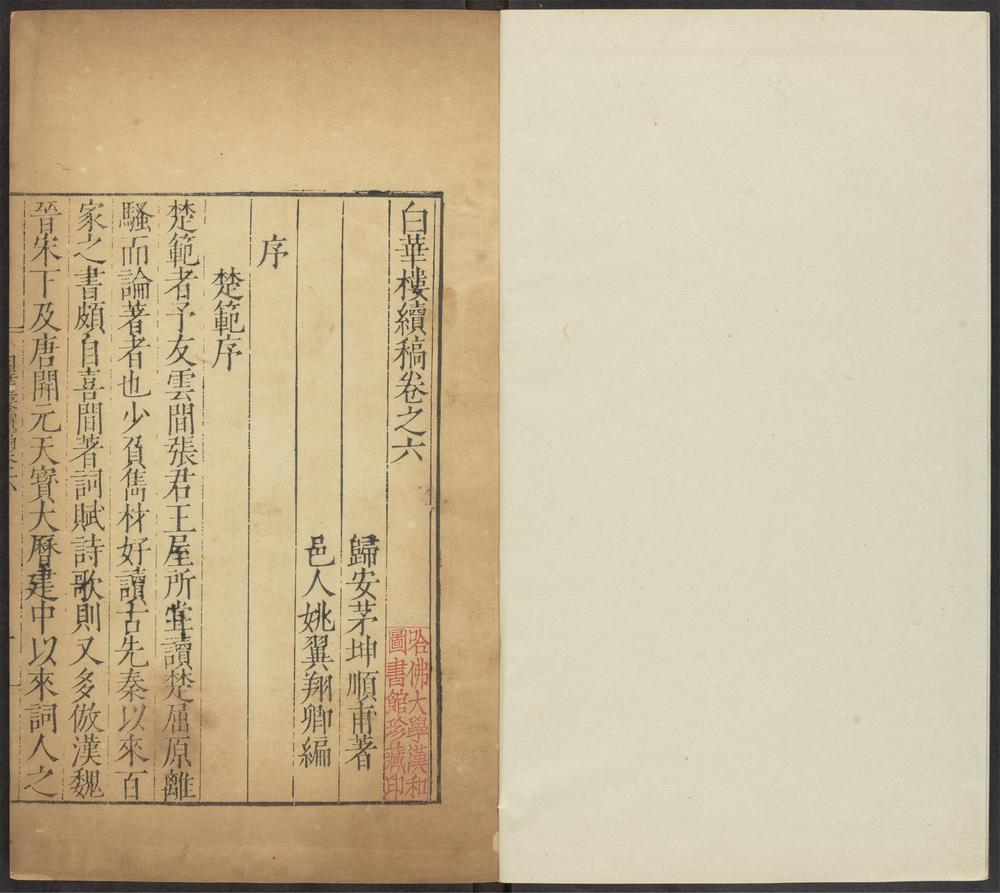 白華樓續稿卷之六
歸安茅坤順甫著
邑人姚翼翔卿編
序
楚範序
楚範者予友雲間張君王屋所甞讀楚屈原離
騷而論著者也少負雋材好讀古先秦以來百
家之書頗自喜間著詞賦詩歌則又多倣漢魏
晉宋下及唐開元天寶大曆建中以來詞人之
哈佛大學漢和
圖書館珍藏印